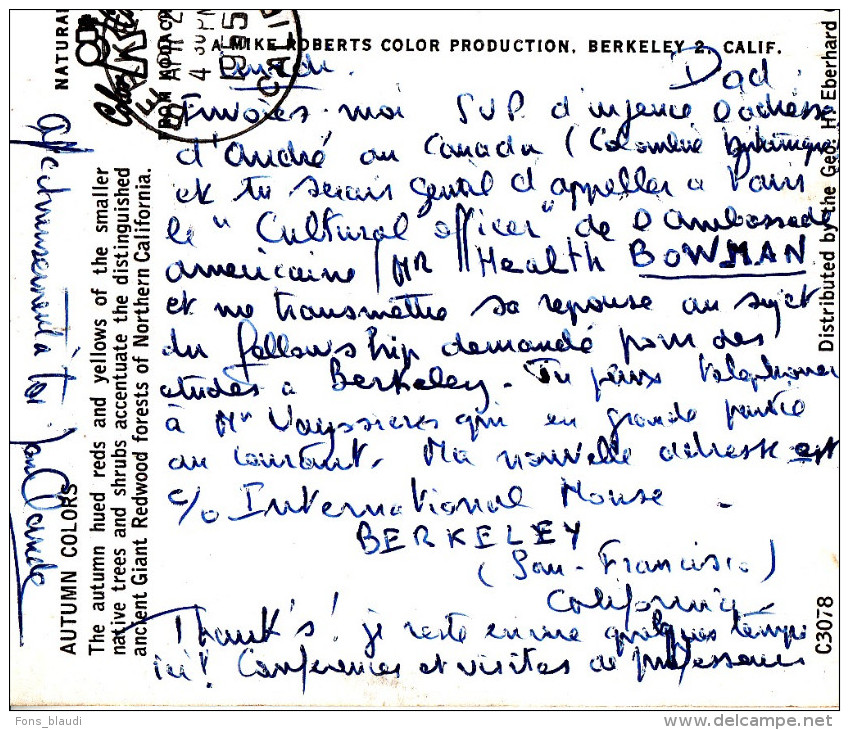 A MIKE ROBERTS COLOR PRODUCTION, BERKELEY 2, CALIF.
NATURAL
FROM KODACH
APR 2
4 30 PM
195
CALIF
Dad
Envoies-moi SVP d'urgence l'adresse
d'André au Canada (Colombie Britannique)
et tu serais gentil d'appeller a Paris
le "Cultural officer" de l'ambassade
americaine Mr Health BOWMAN
et me transmettre sa reponse au sujet
du fellowship demandé pour des
etudes a Berkeley. Tu peux telephoner
à Mr Vayssieres qui en grande partie
au courant. Ma nouvelle adresse est
c/o International House
BERKELEY
(San-Francisco)
California
Thank's! je reste encore quelques temps
ici! Conferences et visites de professeurs
Affectueusement à toi Jean Claude
AUTUMN COLORS
The autumn hued reds and yellows of the smaller
native trees and shrubs accentuate the distinguished
ancient Giant Redwood forests of Northern California.
Distributed by the Geo. H. Eberhard
C3078
Fons_blaudi
delcampe.net